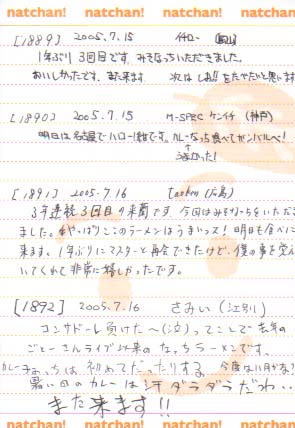 natchan! natchan! natchan! natchan! natchan!
[1889] 2005.7.15 イチロー (岡山)
1年ぶり 3回目です。みそなっちいただきました。
おいしかったです。また来ます。 次は しおなっちをたべたいと思います
[1890] 2005.7.15 M-SPEC ケンイチ (神戸)
明日は名古屋でハロー紺です。カレーなっち食べてガンバルべ!
↑うまかった!
[1891] 2005.7.16 (広島)
3年連続3回目の来蘭です。今回はみそなっちをいただき
ました。やっぱりここのラーメンはうまいっス! 明日も食べに
来ます。1年ぶりにマスターと再会できたけど、僕の事を覚え
ていてくれて非常に嬉しかったです。
[1892] 2005.7.16 さみい (江別)
コンサドーレ負けた〜(泣) ってことで去年の
ごとーさんライブ以来のなっちラーメンです。
カレーなっちは初めてだったりする。 今度は11月かな?
暑い日のカレーは汗ダラダラだわ..
また来ます!!
natchan! natchan! natchan! natchan! natchan!